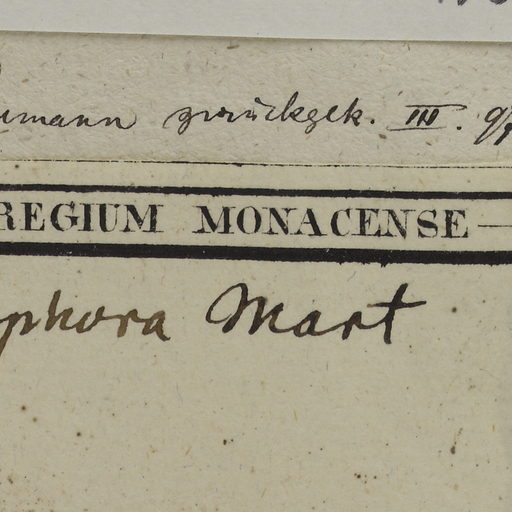 umann zurückgek. III.
REGIUM MONACENSE
phora Mart